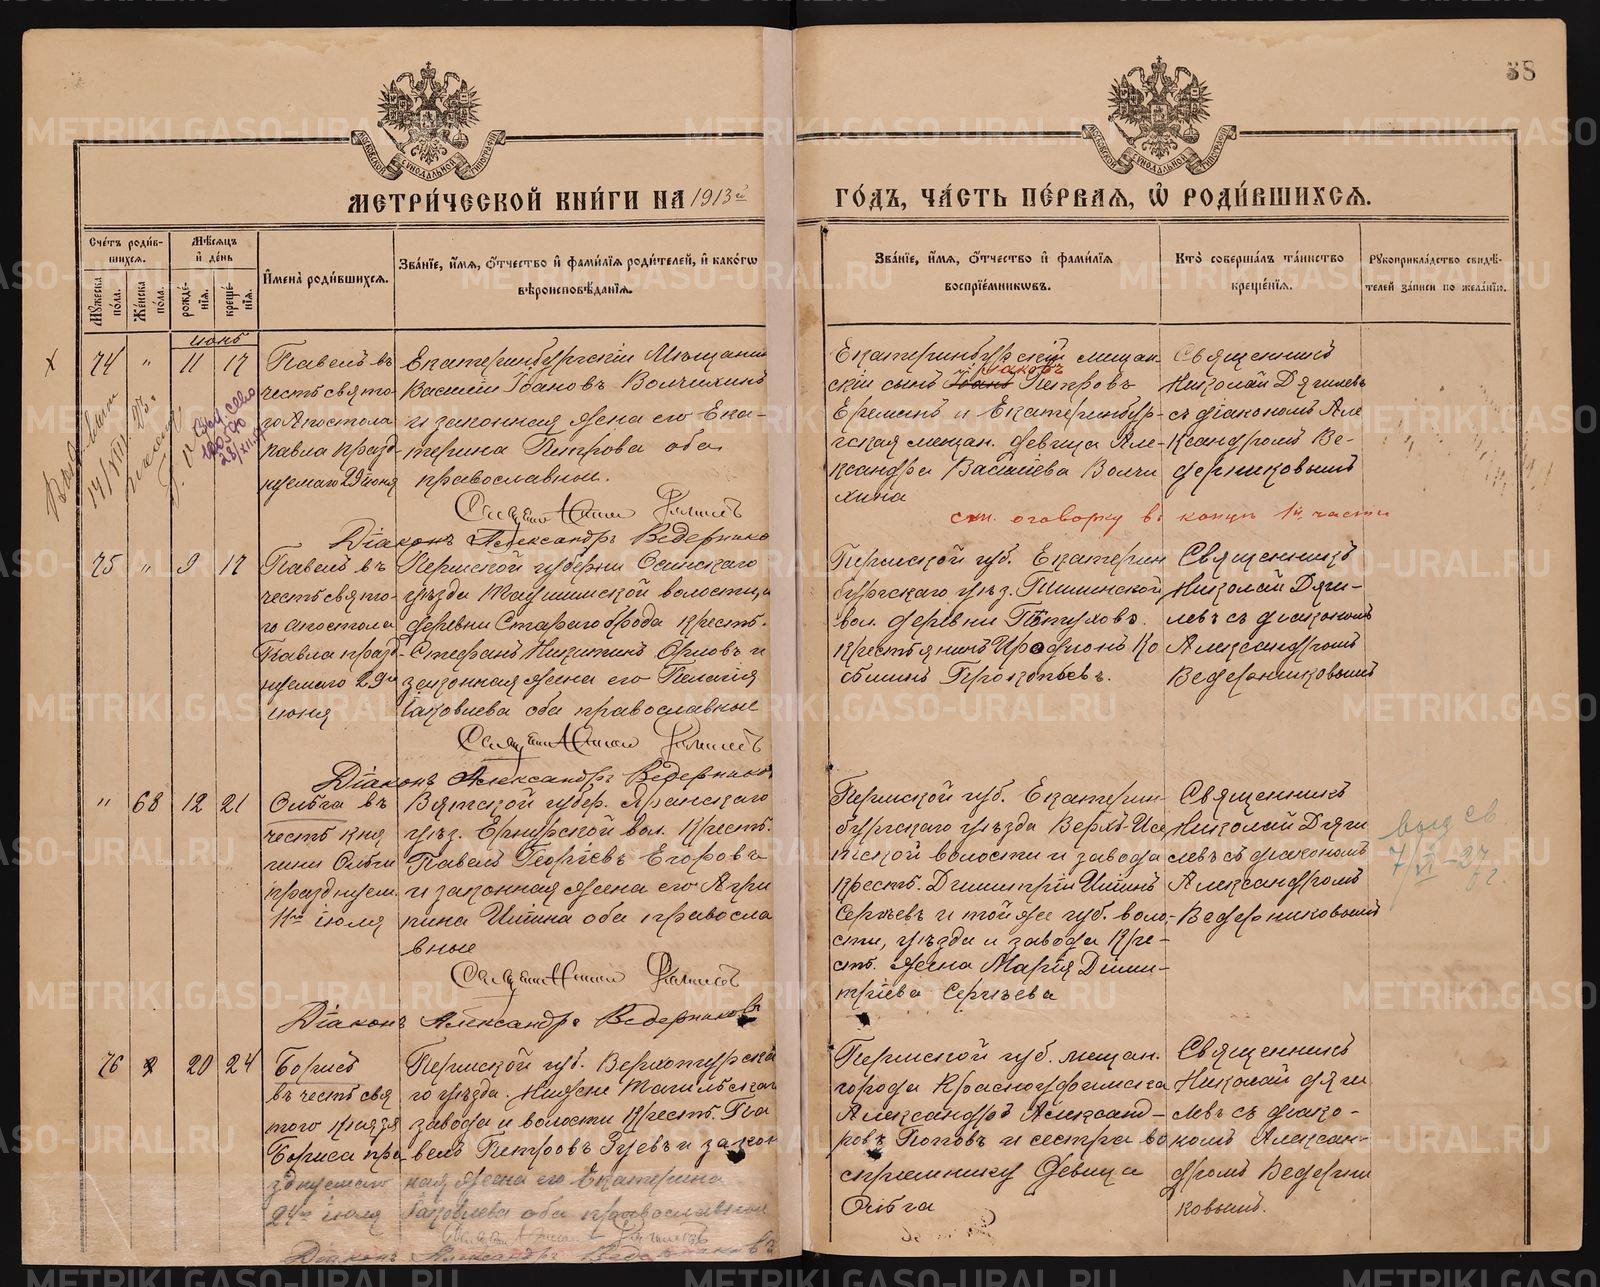 38
МОСКОВСКОЙ СѴНОДАЛЬНОЙ ТИПОГРАФІИ
МОСКОВСКОЙ СѴНОДАЛЬНОЙ ТИПОГРАФІИ
МЕТРИ́ЧЕСКОЙ КНИ́ГИ НА 1913й ГО́ДЪ, ЧА́СТЬ ПЕ́РВАЯ, Ѽ РОДИ́ВШИХСЯ.
Сче́тъ роди́в-
шихся.
Мꙋ́жеска по́ла.
Же́нска по́ла.
Мѣ́сяцъ
и҆ де́нь
рожде́-
нїя.
креще́-
нїя.
И҆мена̀ роди́вшихся.
Зва́нїе, и҆́мя, ѻ҆́тчество и҆ фами́лїя роди́телей, и҆ како́гѡ
вѣроисповѣ́данїя.
Зва́нїе, и҆́мя, ѻ҆́тчество и҆ фами́лїя
воспрїе́мникѡвъ.
Кто̀ соверша́лъ та́инство
креще́нїя.
Рꙋкоприкла́дство свидѣ́-
телей за́писи по жела́нїю.
июнь
74 " 11 17
Павелъ въ
честь свято-
го Апостола
Павла празд-
нуемаго 29 июня
Екатеринбургскій Мѣщанин
Василій Ивановъ Волчихинъ
и законная жена его Ека-
терина Петрова оба
православные.
Священникъ Николай Дягилевъ
Діаконъ Александръ Ведернико
Екатеринбургскій мещан-
скій сынъ Иванъ Петровъ
Яковъ
Еремин и Екатеринбур-
гская мещан. девица Але-
ксандра Васильева Волчи
хина
Священникъ
Николай Дягилевъ
съ діакономъ Але
ксандромъ Ве-
дерниковымъ
см. оговорку въ концѣ 1й части
75 " 9 17
Павелъ въ
честь свято-
го апостола
Павла празд-
нуемаго 29го
июня
Пермской губерни Осинскаго
уѣзда
деревни Стараго брода крестъ.
Стефанъ Никитинъ Орловъ и
законная жена его Пелагія
Іаковлева оба православные
Священникъ Николай Дягилевъ
Діаконъ Александръ Ведернико
Пермской губ. Екатерин
бургскаго уѣз.
вол. деревни
крестьянинъ Иродіонъ
Прокопьевъ.
Священникъ
Николай Дяги-
левъ съ диакономъ
Александромъ
Ведерниковымъ
" 68 12 21
Ольга въ
честь кня
гини Ольги
празднуем.
11го іюля
Вятской губер. Яранскаго
уѣз. Ернурской вол. крестъ.
Павелъ Георгіевъ Егоровъ
и законная жена его Агри
пина Ильина оба правосла
вные
Священникъ Николай Дягилевъ
Діаконъ Александръ Ведерниковъ
Пермской губ. Екатерин-
бургскаго уѣзда Верхъ-Исе
тской волости и завода
крестъ. Димитрій Ильинъ
Сергѣевъ и той же губ. воло-
сти, уѣзда и завода кре-
ст. жена Марія Дими-
тріева Сергѣева
Священникъ
Николай Дяги
левъ съ диакономъ
Александромъ
Ведерниковымъ
76 20 24
Борисъ
въ честь свя
того князя
Бориса пра
зднуемаго
24го іюля
Пермской губ. Верхотурска
го уѣзда. Нижне Тагильскаго
завода и волости крестъ. Па
велъ Петровъ Зуевъ и закон
ная жена его Екатерина
Іаковлева оба православные
Діаконъ Александръ Ведерниковъ
Пермской губ. мещан.
города Красноуфимска
Александръ Александ-
ровъ Поповъ и сестра во
спріемнику девица
Ольга
Священникъ
Николай Дяги
левъ съ диако-
номъ Алексан-
дромъ Ведерни
ковымъ.